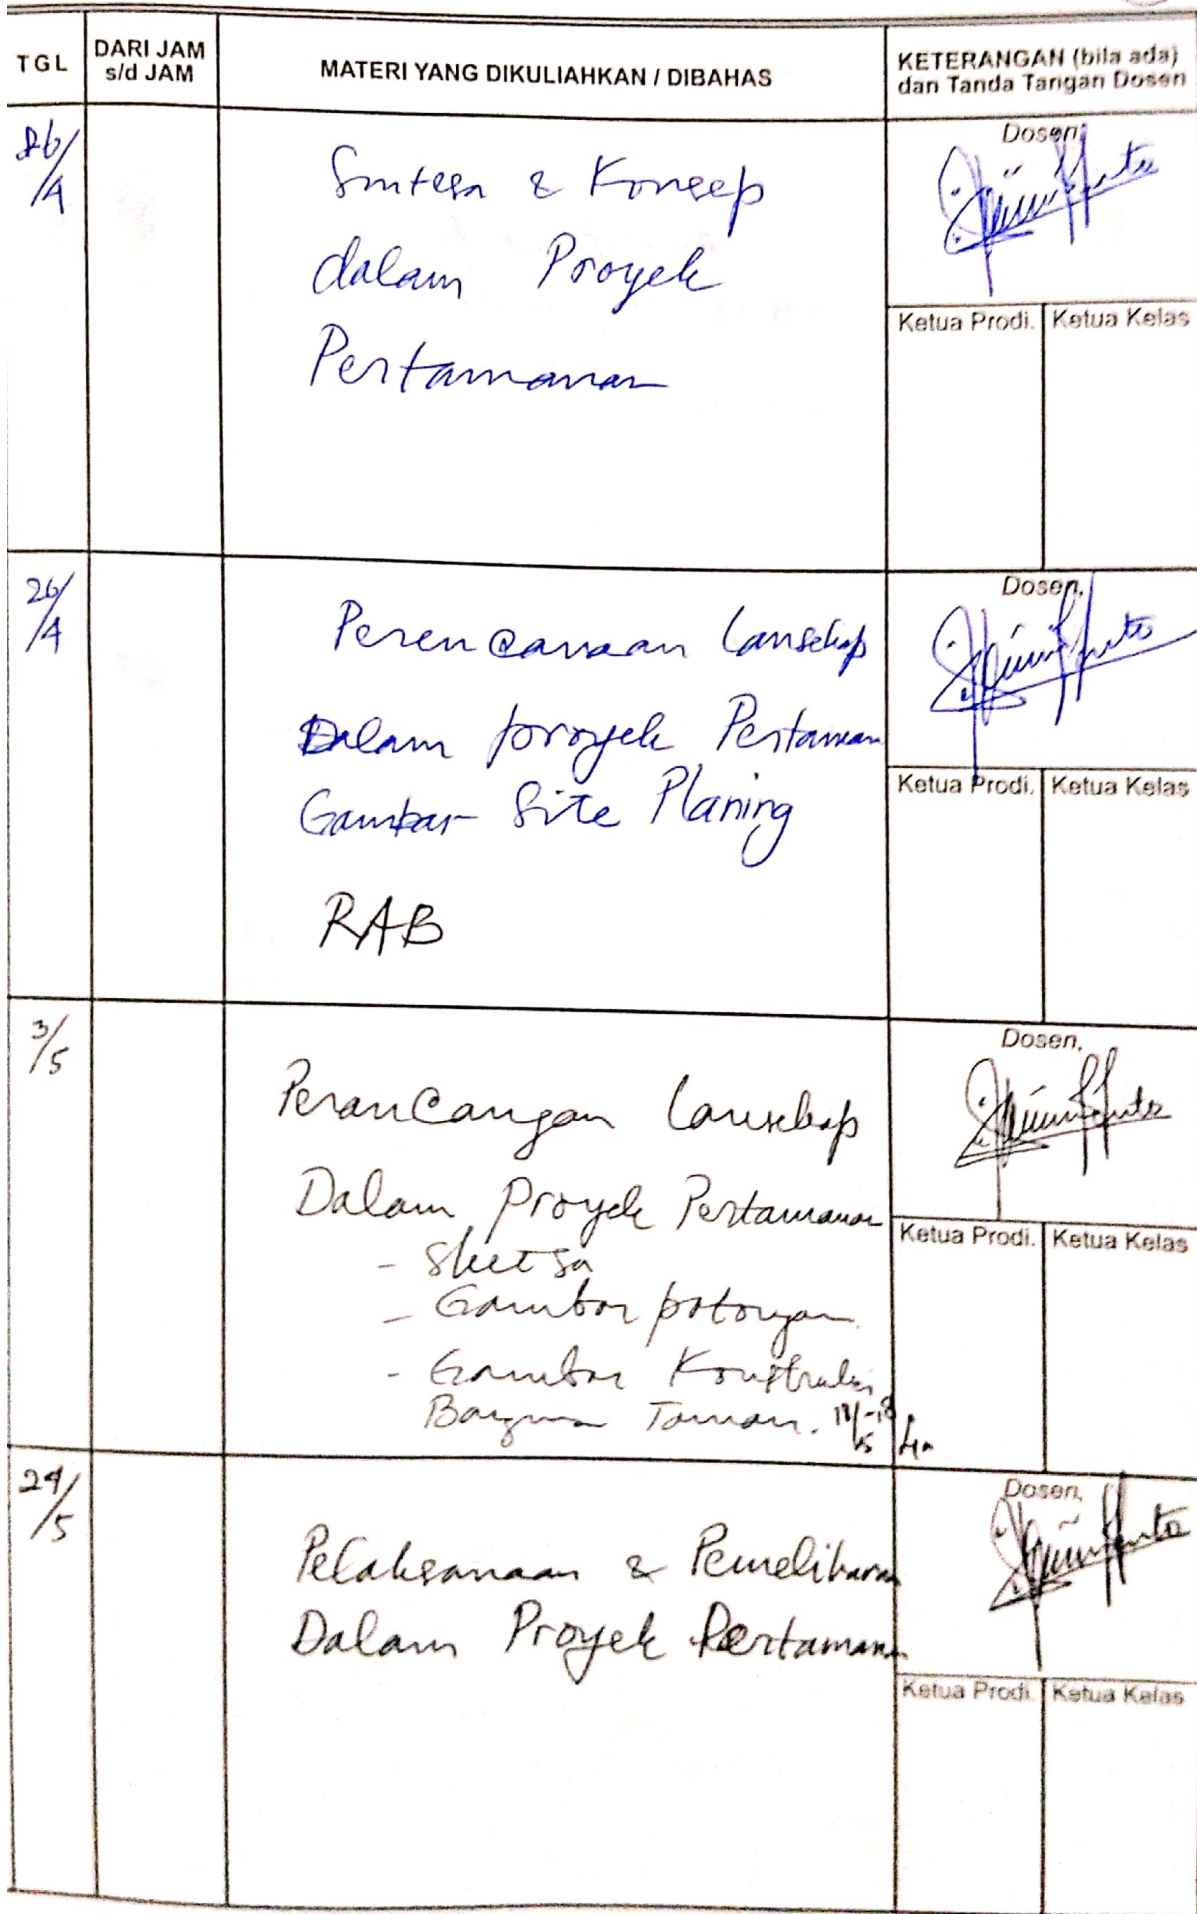 TGL
DARI JAM
s/d JAM
MATERI YANG DIKULIAHKAN / DIBAHAS
KETERANGAN (bila ada)
dan Tanda Tangan Dosen
26/4
Sintesa & Konsep
dalam Proyek
Pertamanan
Dosen,
Ketua Prodi.
Ketua Kelas
26/4
Perencanaan Lansekap
Dalam proyek Pertaman
Gambar Site Planing
RAB
Dosen,
Ketua Prodi.
Ketua Kelas
3/5
Perancangan Lansekap
Dalam Proyek Pertamanan
- Sketsa
- Gambar potongan
- Gambar Konstruksi
Bangunan Taman.
Dosen,
Ketua Prodi.
Ketua Kelas
24/5
Pelaksanaan & Pemeliharaan
Dalam Proyek Pertamanan
Dosen,
Ketua Prodi.
Ketua Kelas